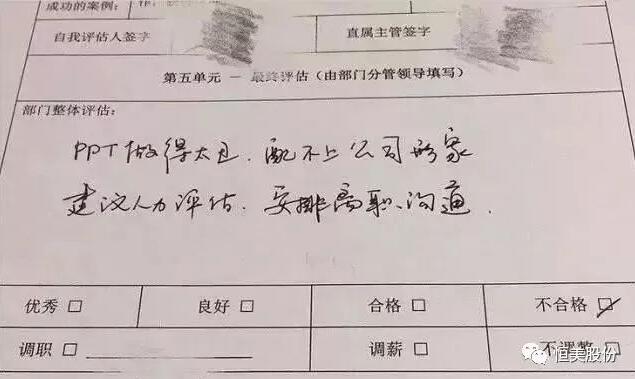 成功的案例:
自我评估人签字
直属主管签字
第五单元 — 最终评估（由部门分管领导填写）
部门整体评估:
PPT做得太丑.配不上公司形象
建议人力评估.安排离职沟通.
优秀 □ 良好 □ 合格 □ 不合格 ☑
调职 □ 调薪 □ 不调整 □
恒美股份